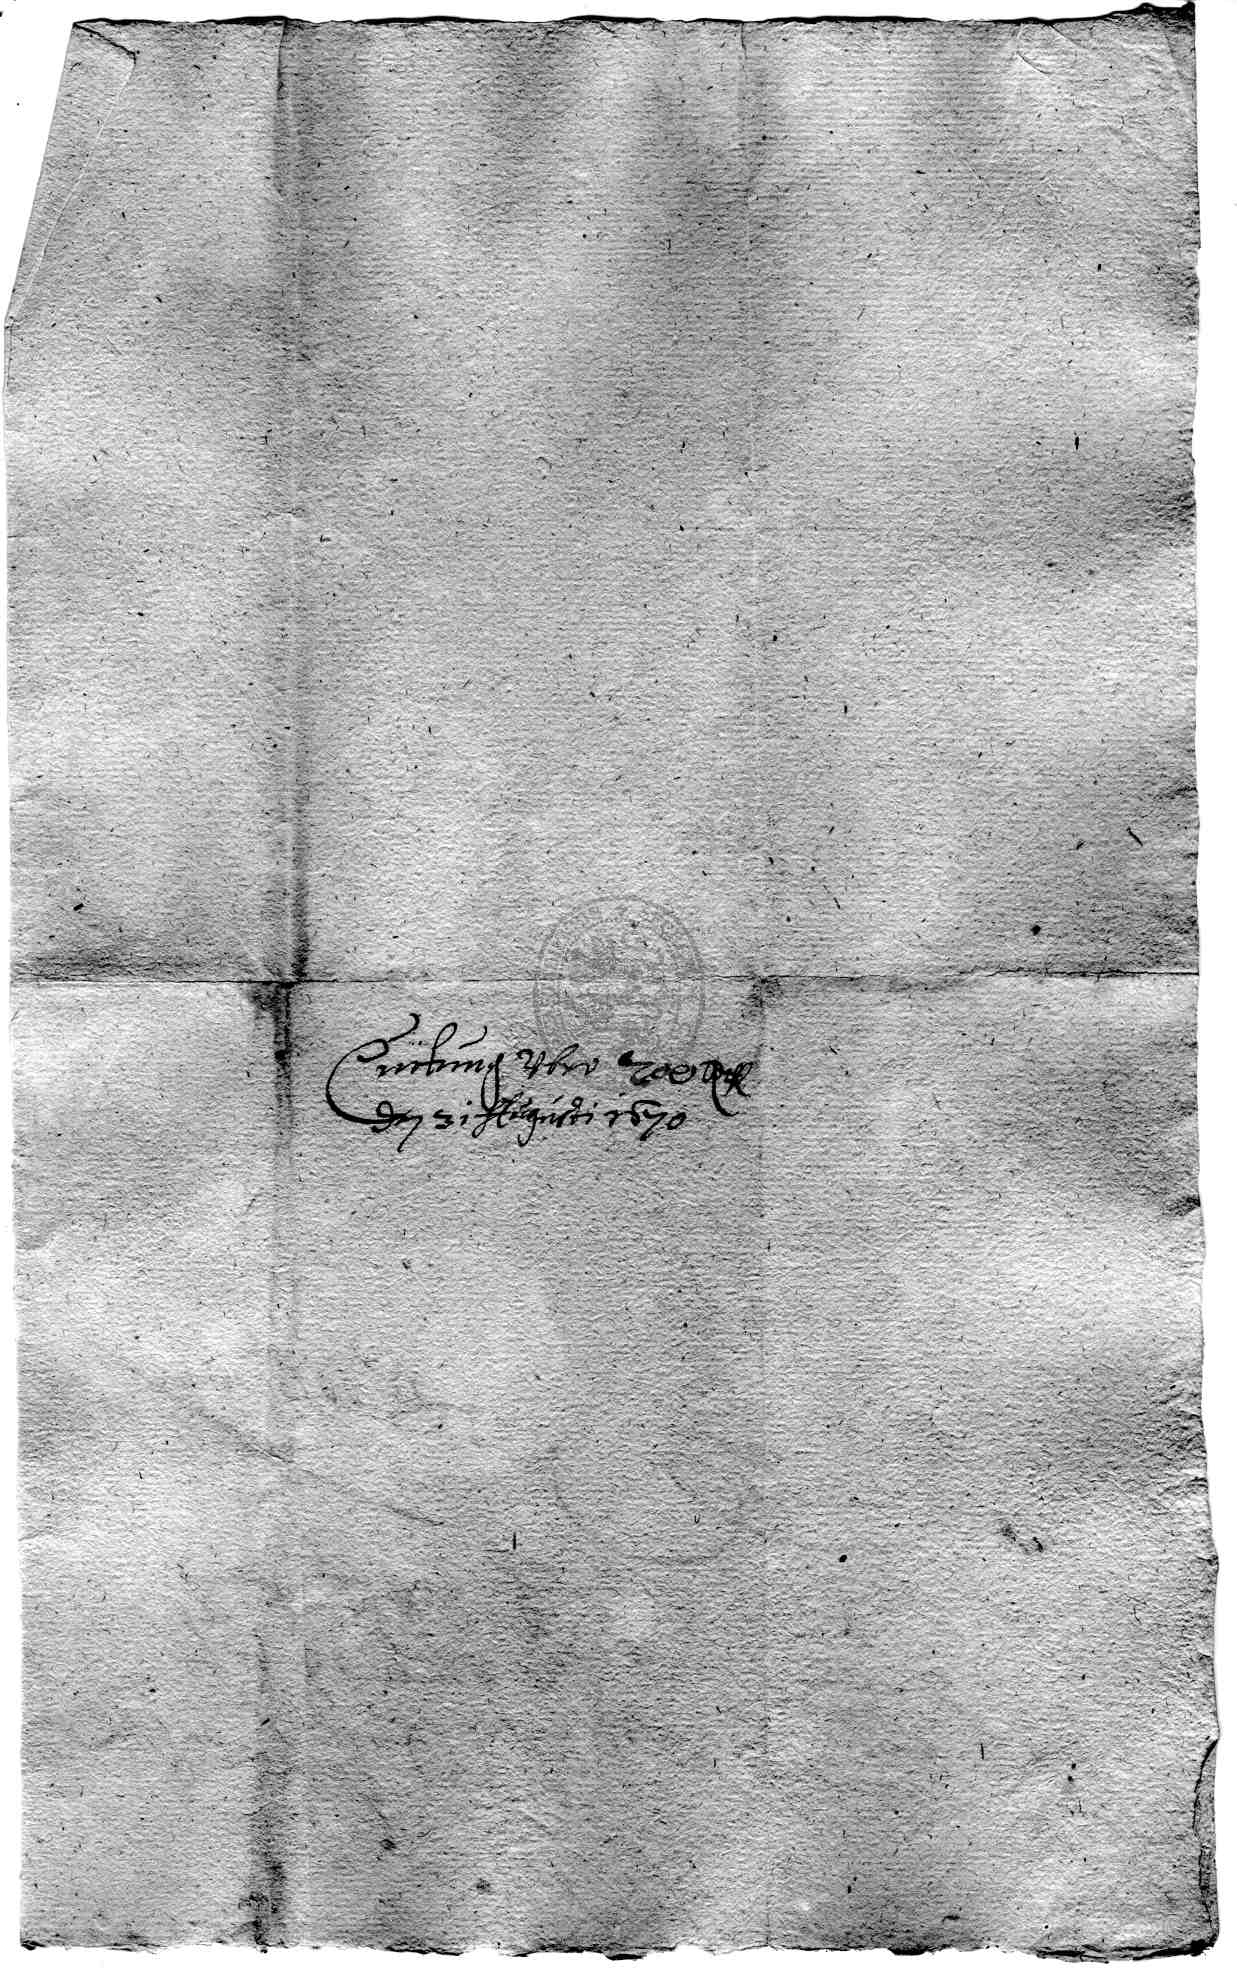 Quitung Vber 200 Rthl
den 31 Augusti 1670